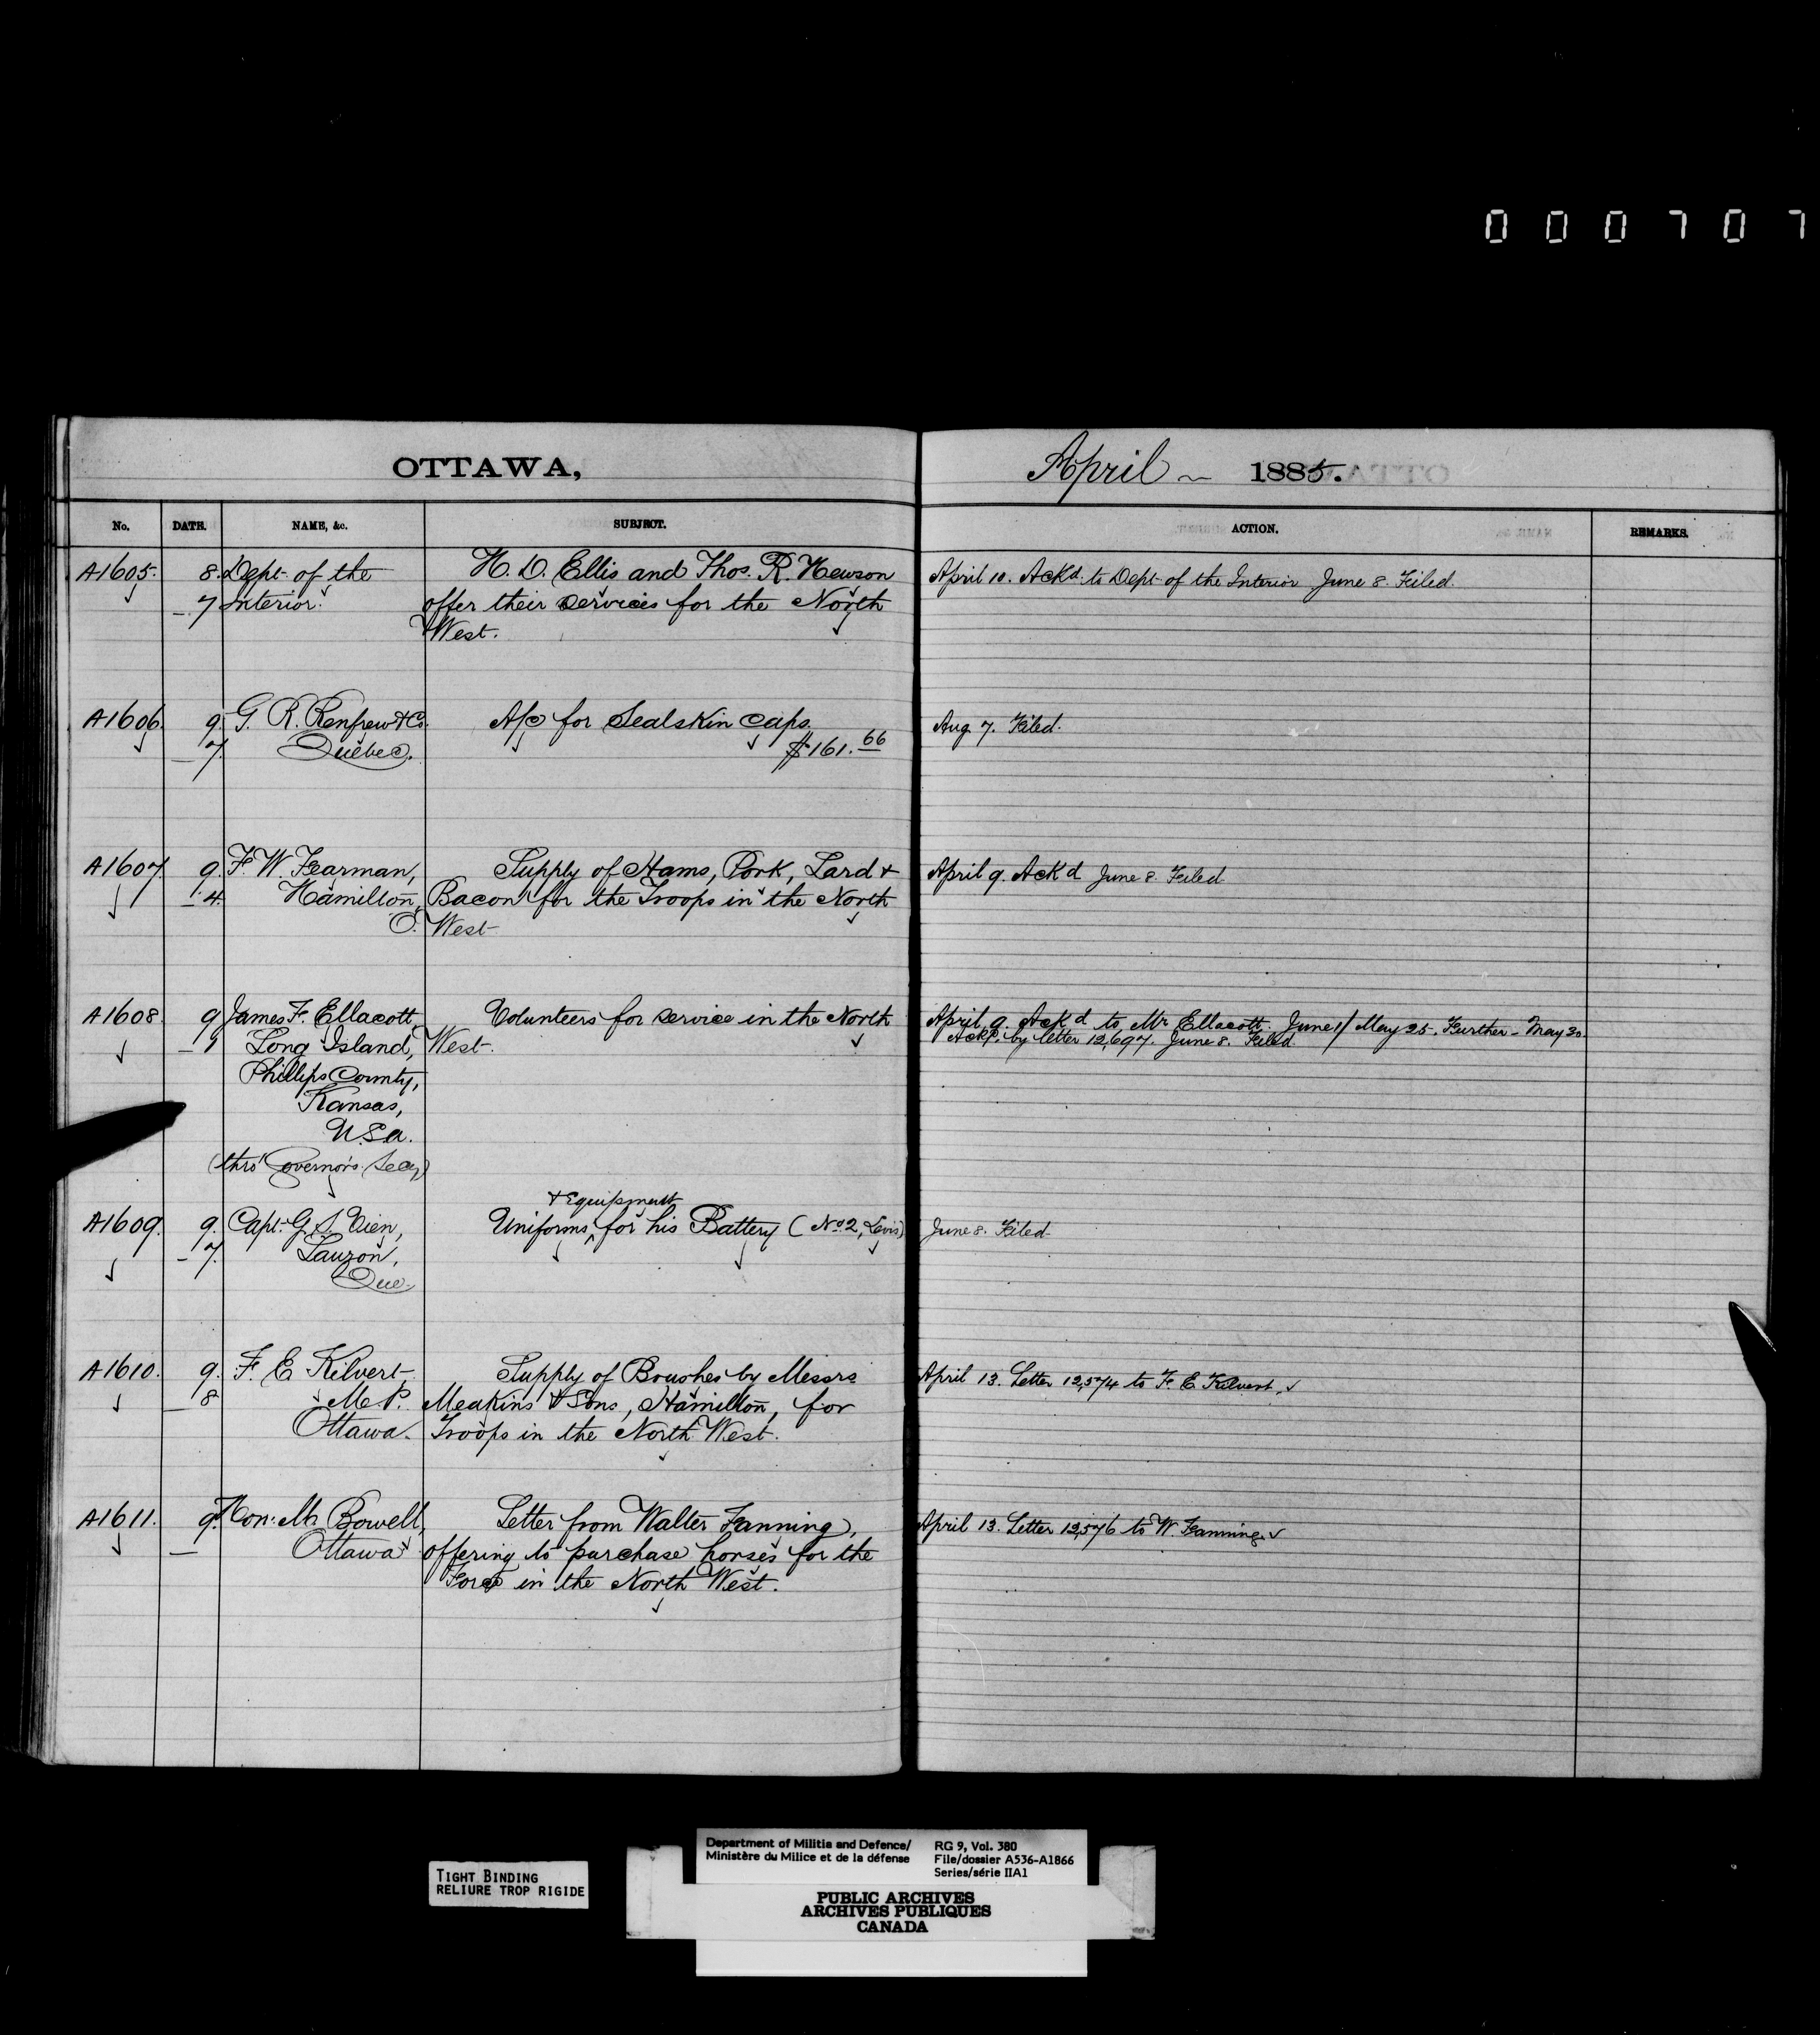 000707
OTTAWA,
April 1885.
No. DATE. NAME, &c. SUBJECT. ACTION. REMARKS.
A1605. 8. Dept. of the H. D. Ellis and Thos. R. Hewson April 10. Ackd. to Dept. of the Interior June 8. Filed.
7 Interior. offer their services for the North
West.
A1606. 9. G. R. Renfrew & Co. A/c for Sealskin Caps. Aug 7. Filed.
7. Quebec. $161.66
A1607 9. F. W. Fearman, Supply of Hams, Pork, Lard & April 9. Ack'd June 8. Filed
4 Hamilton, Bacon for the Troops in the North
O. West
A1608. 9 James F. Ellacott, Volunteers for service in the North April 9. Ack'd to Mr Ellacott. June 1/ May 25. Further - May 30.
1 Long Island, West. Ackd. by letter 12,697. June 8. Filed.
Phillips County,
Kansas,
U.S.A.
(thro' Governor's Secy)
& Equipment
A1609. 9. Capt. G. S. Vien, Uniforms ^ for his Battery (No. 2, Levis) June 8. Filed.
7. Lauzon,
Que.
A1610. 9. F. E. Kilvert, Supply of Brushes by Messrs April 13. Letter 12,574 to F. E. Kilvert.
8 M.P. Meakins & Sons, Hamilton, for
Ottawa. Troops in the North West.
A1611. 9. Hon: M. Bowell, Letter from Walter Fanning, April 13. Letter 12,576 to W. Fanning.
Ottawa offering to purchase horses for the
Force in the North West.
TIGHT BINDING
RELIURE TROP RIGIDE
Department of Militia and Defence/
Ministère du Milice et de la défense
RG 9, Vol. 380
File/dossier A536-A1866
Series/série IIA1
PUBLIC ARCHIVES
ARCHIVES PUBLIQUES
CANADA